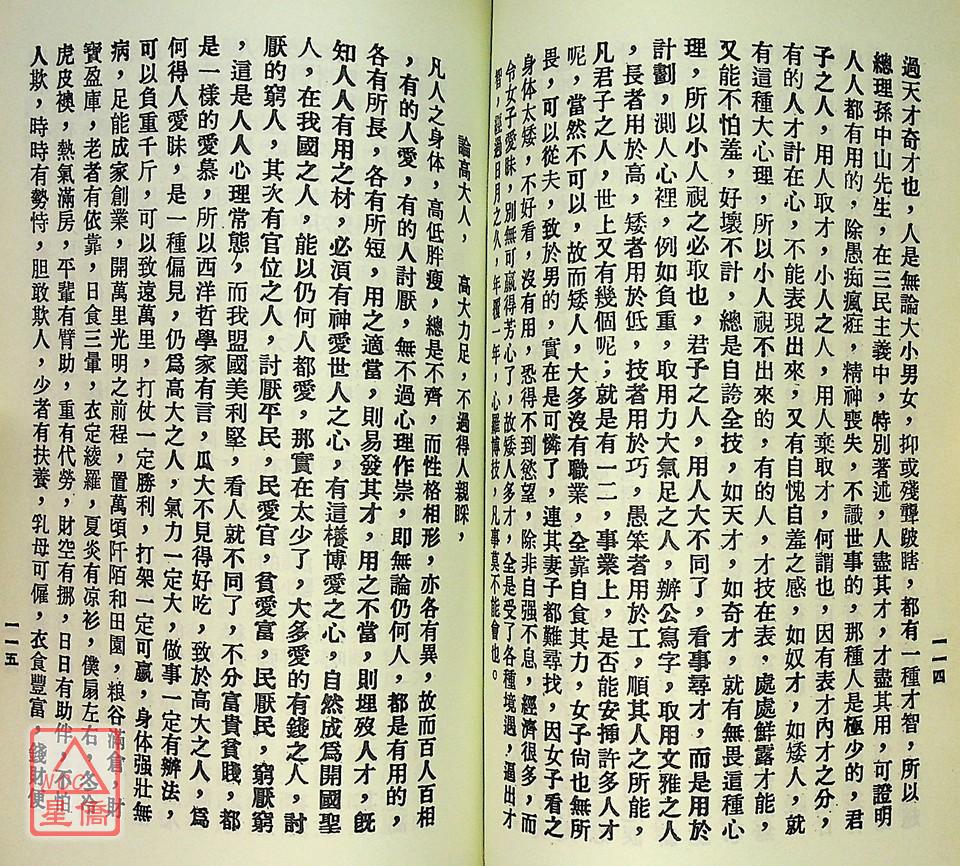 過天才奇才也，人是無論大小男女，抑或殘聾跛瞎，都有一種才智，所以
總理孫中山先生，在三民主義中，特別著述，人盡其才，才盡其用，可證明
人人都有用的，除愚痴瘋疰，精神喪失，不識世事的，那種人是極少的，君
子之人，用人取才，小人之人，用人棄取才，何謂也，因有表才內才之分，
有的人才計在心，不能表現出來，又有自愧自羞之感，如奴才，如矮人，就
有這種大心理，所以小人視不出來的，有的人，才技在表，處處鮮露才能，
又能不怕羞，好壞不計，總是自誇全技，如天才，如奇才，就有無畏這種心
理，所以小人視之必取也，君子之人，用人大不同了，看事尋才，而是用於
計劃，測人心裡，例如負重，取用力大氣足之人，辦公寫字，取用文雅之人
，長者用於高，矮者用於低，技者用於巧，愚笨者用於工，順其人之所能，
凡君子之人，世上又有幾個呢，就是有一二，事業上，是否能安揷許多人才
呢，當然不可以，故而矮人，大多沒有職業，全靠自食其力，女子尙也無所
畏，可以從夫，致於男的，實在是可憐了，連其妻子都難尋找，因女子看之
身体太矮，不好看，沒有用，恐得不到慾望，除非自强不息，經濟很多，而
令女子愛昧，別無可贏得芳心了，故矮人多才，全是受了各種境遇，逼出才
智，經過日月之久，年覆一年，心羅博技，凡事莫不能會也。
一一四
論高大人，　高大力足，不過得人親睬，
凡人之身体，高低胖瘦，總是不齊，而性格相形，亦各有異，故而百人百相
，有的人愛，有的人討厭，無不過心理作崇，即無論仍何人，都是有用的，
各有所長，各有所短，用之適當，則易發其才，用之不當，則埋歿人才，旣
知人人有用之材，必須有神愛世人之心，有這樣博愛之心，自然成爲開國聖
人，在我國之人，能以仍何人都愛，那實在太少了，大多愛的有錢之人，討
厭的窮人，其次有官位之人，討厭平民，民愛官，貧愛富，民厭民，窮厭窮
，這是人人心理常態，而我盟國美利堅，看人就不同了，不分富貴貧賤，都
是一樣的愛慕，所以西洋哲學家有言，瓜大不見得好吃，致於高大之人，爲
何得人愛昧，是一種偏見，仍爲高大之人，氣力一定大，做事一定有辦法，
可以負重千斤，可以致遠萬里，打仗一定勝利，打架一定可贏，身体强壯無
病，足能成家創業，開萬里光明之前程，置萬頃阡陌和田園，粮谷滿倉，財
寶盈庫，老者有依靠，日食三暈，衣定綾羅，夏炎有凉衫，僕扇左右，冬冷
虎皮襖，熱氣滿房，平輩有臂助，重有代勞，財空有挪，日日有助伴，不怕
人欺，時時有勢恃，胆敢欺人，少者有扶養，乳母可僱，衣食豐富，錢財便
一一五
WSC
星僑